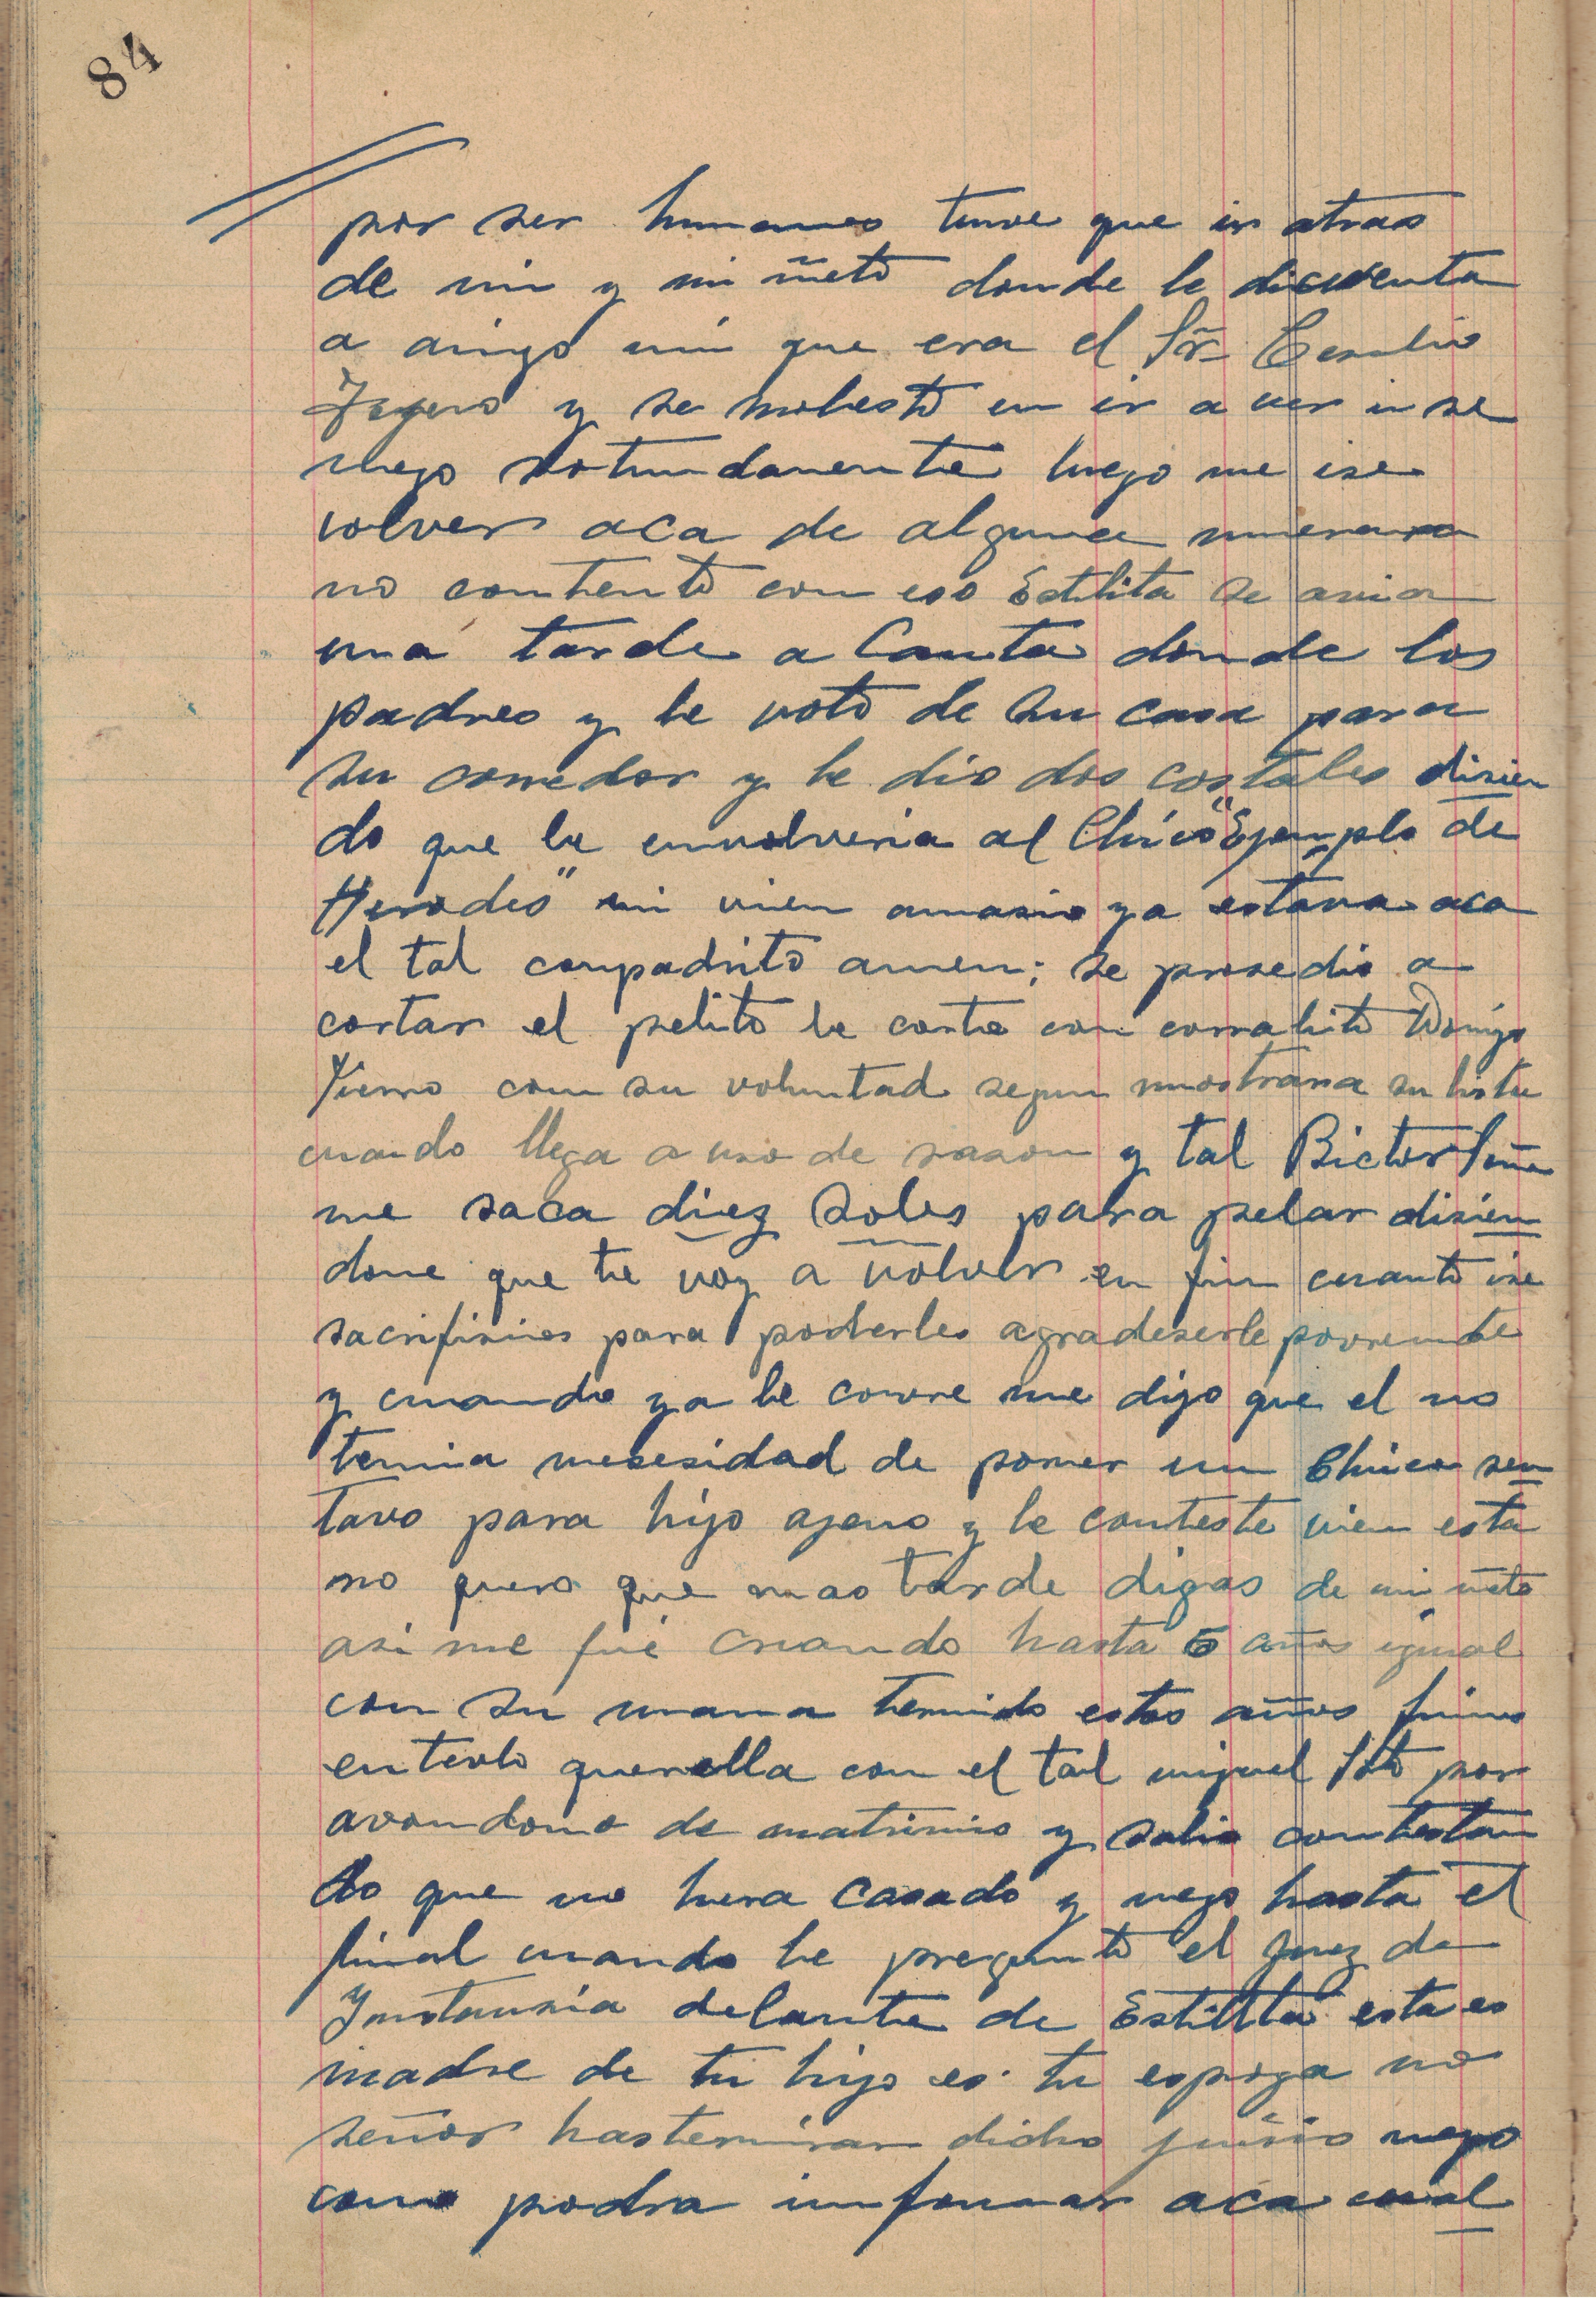 84
por ser humanos tuve que ir atras
de mi y mi ñeto donde le dicuenta
a amigo mio que era el Sr̃
y se molestó en ir a ver i se
nego rotundamente luego me ise
volver aca de alguna manera
no contento con eso Estilita se avia
una tarde a Canta donde los
padres y le votó de su casa para
su comedor y le dio dos costales disien
do que le envolveria al Chico "Ejemplo de
Herodes" mi vien amasio ya estava aca
el tal compadrito amen; se prosedio a
cortar el pelito le corte con corralito Domigo
Yierro con su voluntad segun mostrara su lista
cuando llega a uso de rason y tal Bictor Peña
me saca diez soles para pelar disien
dome que te voy a volver en fin cuanto ise
sacrifisios para poderles agradeserle
y cuando ya le covre me dijo que el no
tenia nesesidad de poner un Chico sen
tavo para hijo ajeno y le conteste vien esta
no quero que mas tarde digas de mi ñeto
asi me fué criando hasta 5 años igual
con su mama tenido estos años
entavlo querella con el tal miguel Soto por
avandono de matrimio y salio contestan
do que no huera casado y nego hasta el
final cuando le pregunto el Juez de
Instansia delante de Estilita esta es
madre de tu hijo es tu espoza no
señor hasterminar dicho juisio nego
como podra imformar aca cual